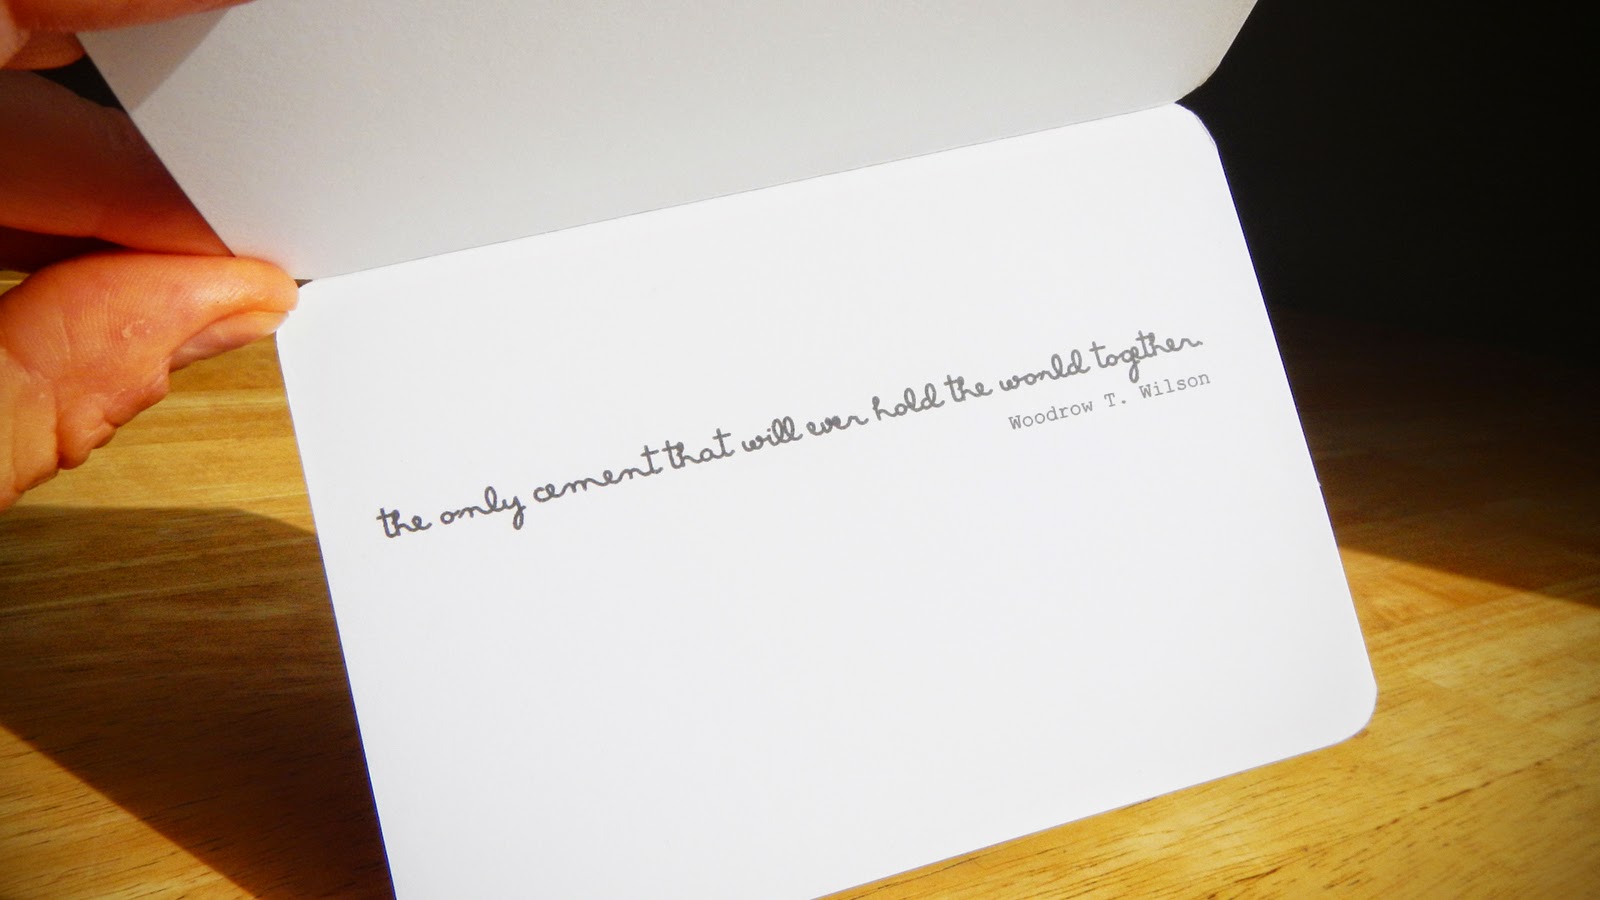 the only cement that will ever hold the world together.
Woodrow T. Wilson